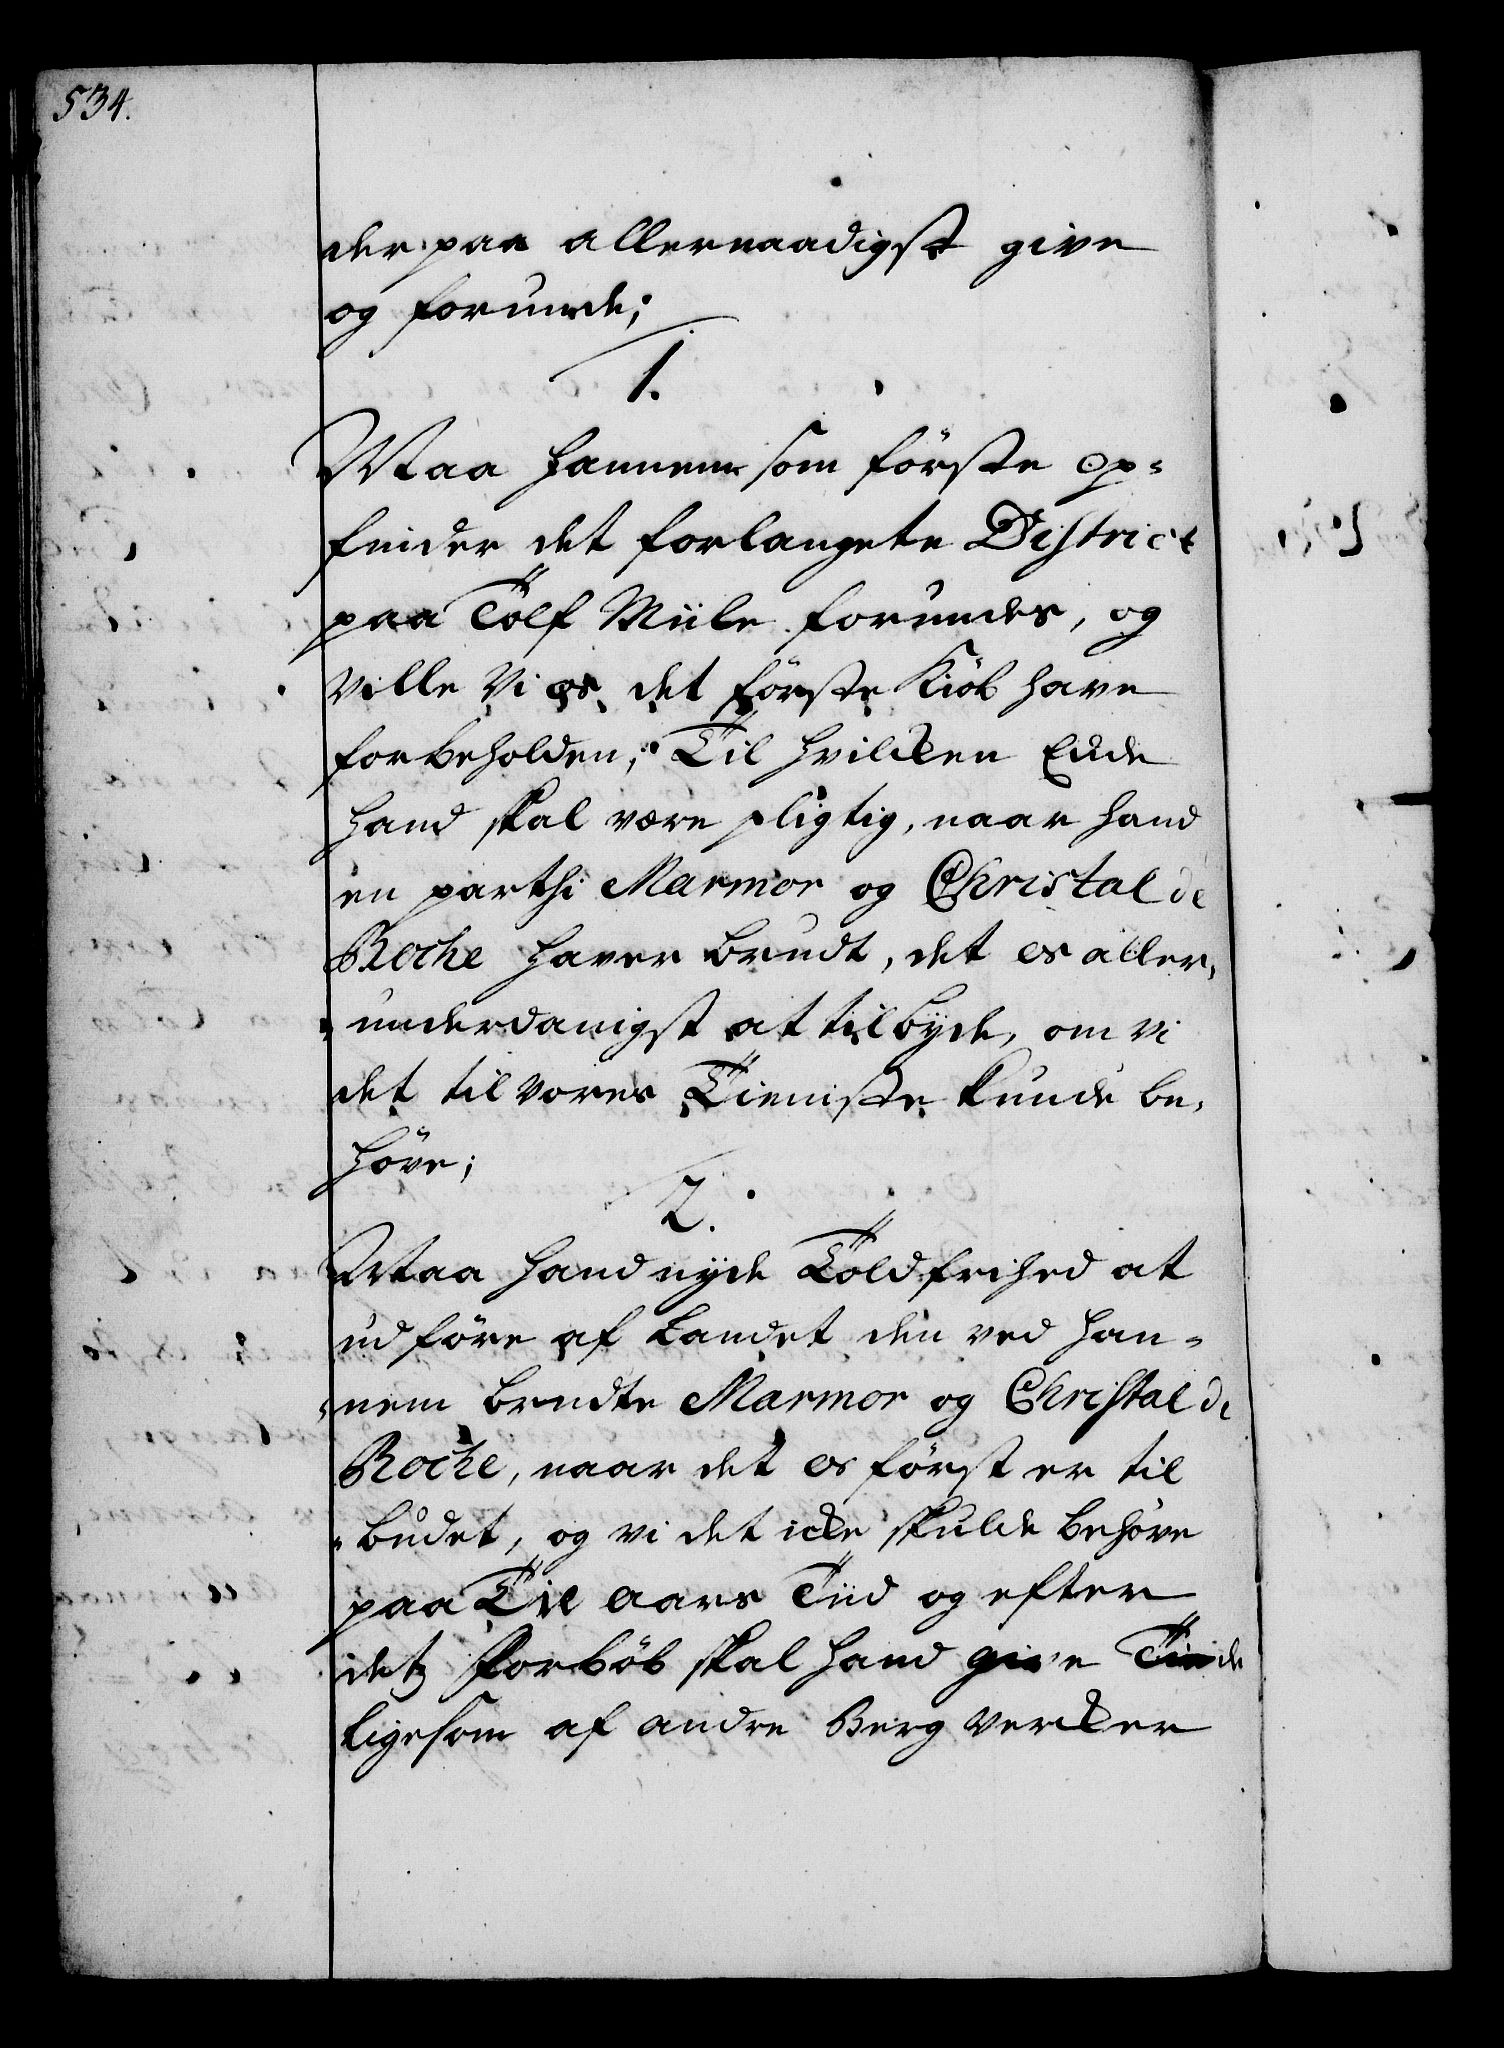 534.
der paa allernaadigst give
og forunde;
1.
Maa hannem som förste op-
finder det forlangete District
paa Tolf Miile forundes, og
ville Vi os det förste Kiöb have
forbeholden; Til hvilcken Ende
hand skal være pligtig, naar hand
en parthi Marmor og Christal de
Roche haver brudt, det os aller-
underdanigst at tilbÿde, om vi
det til vores Tieniste kunde be-
höve;
2.
Maa hand nÿde Toldfrihed at
udföre af Landet den ved han-
nem brudte Marmor og Christal de
Roche, naar det os först er til
budet, og vi det icke skulde behöve
paa Tie aars Tiid og efter
detz Forlöb skal hand give Tiinde
ligesom af andre Berg Vercker